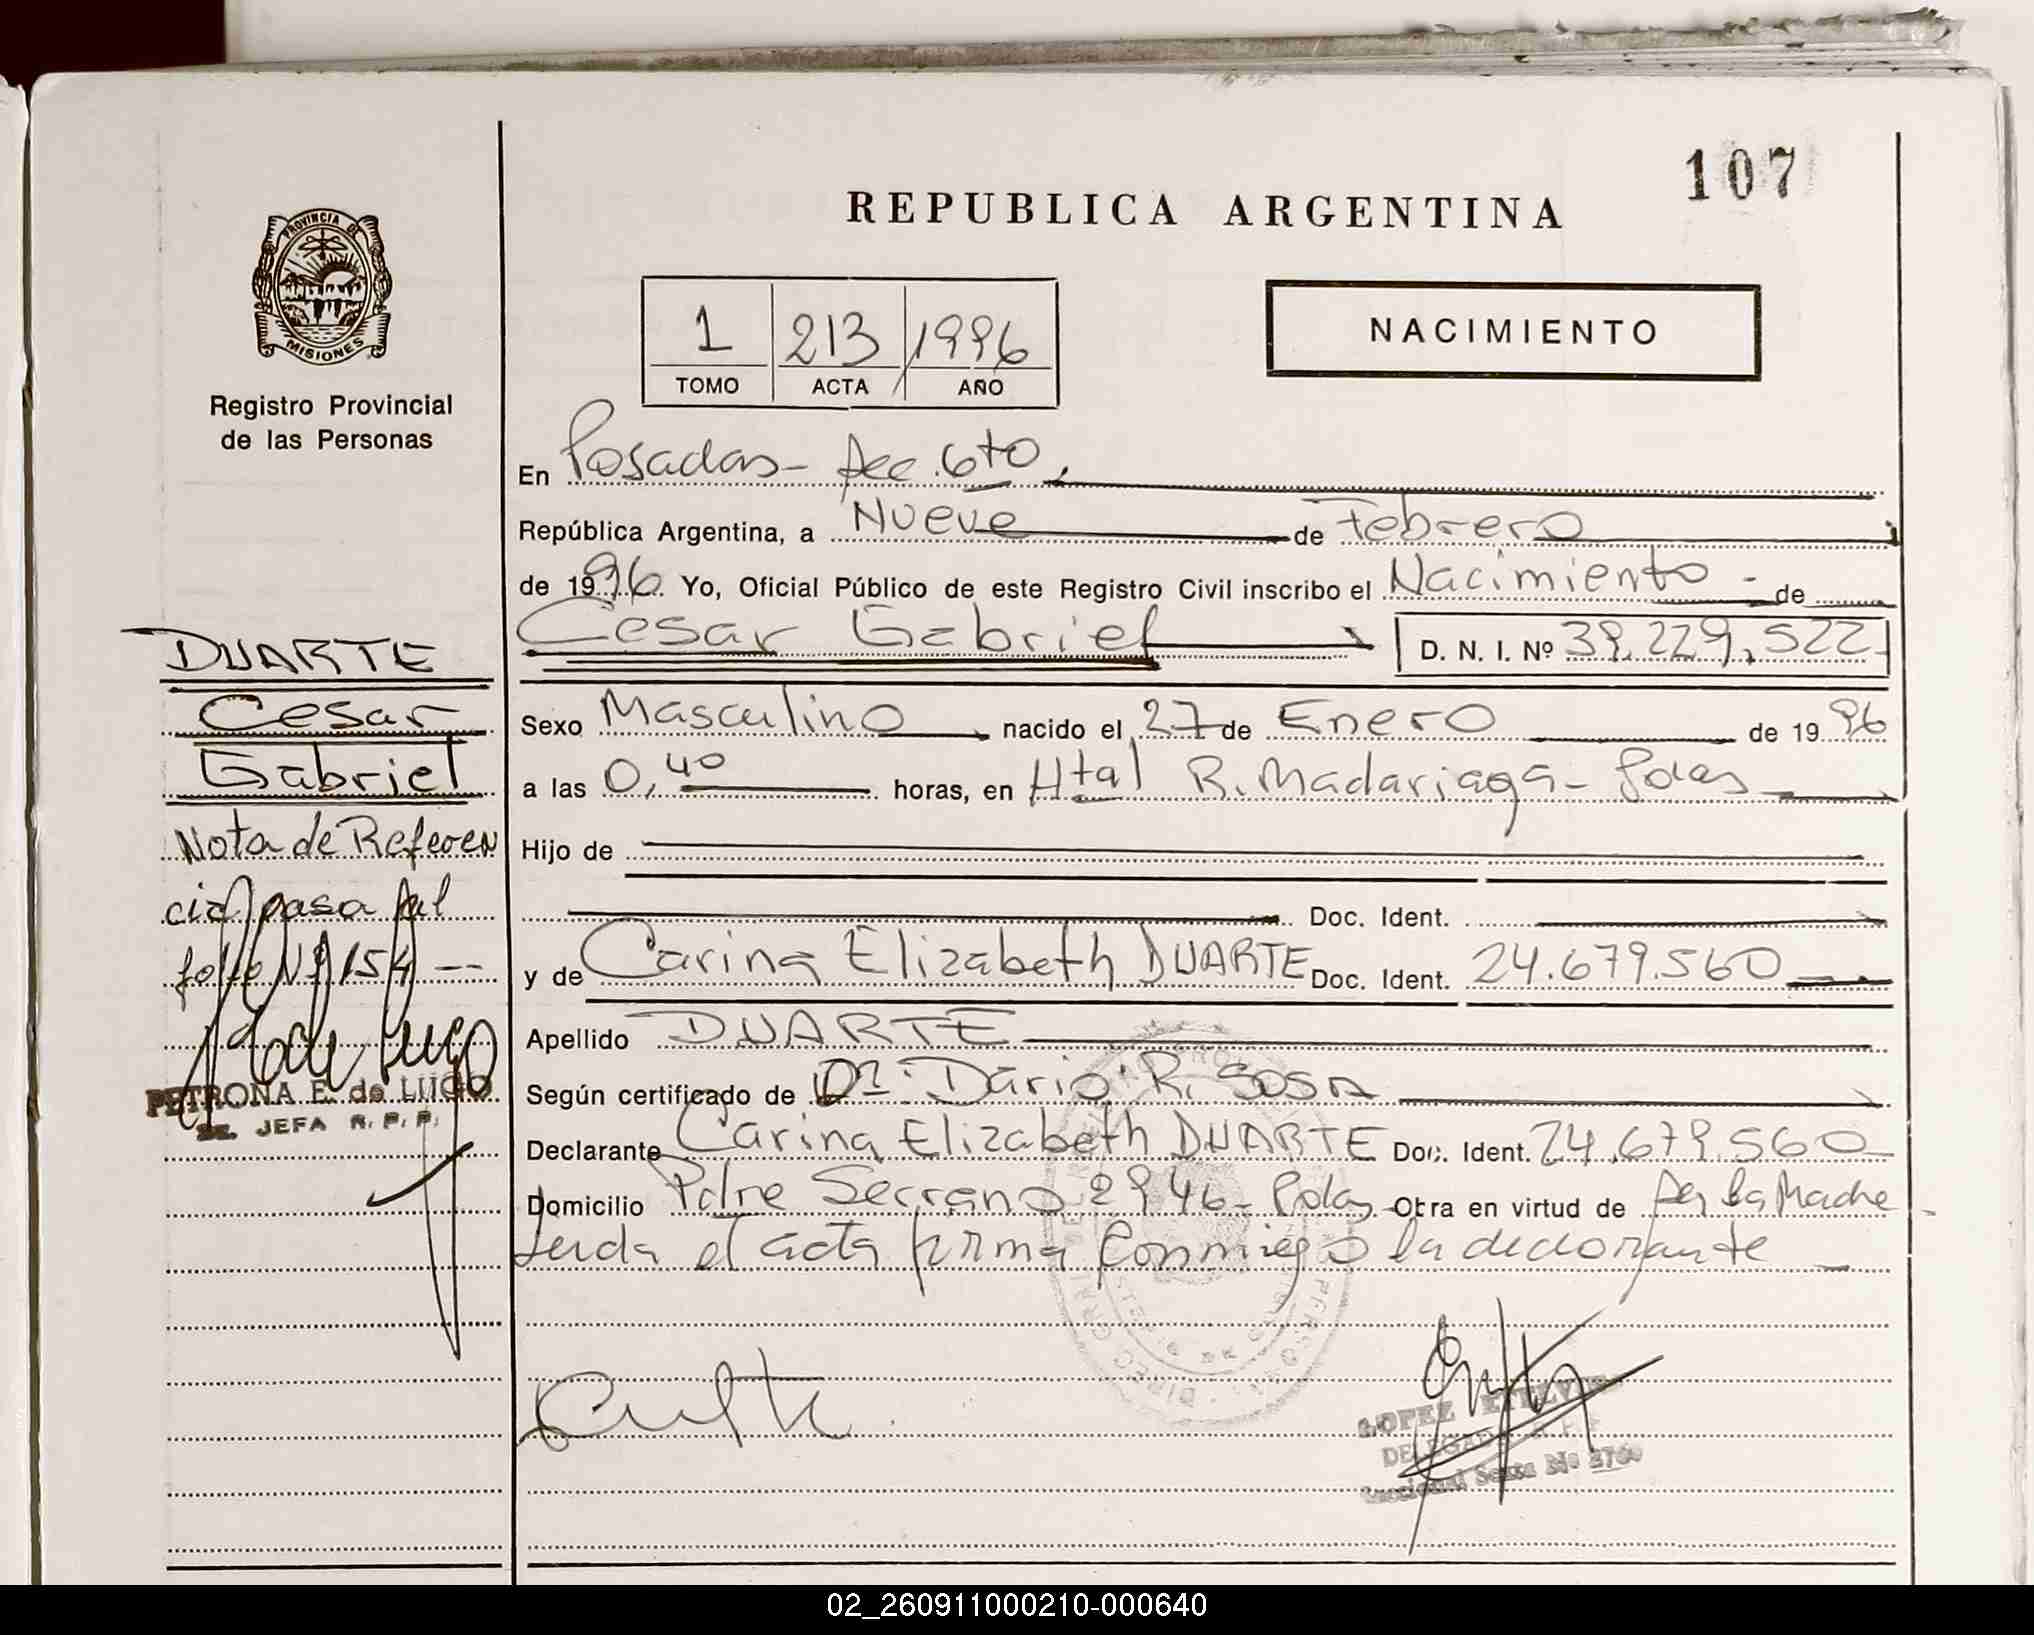 107
REPUBLICA ARGENTINA
PROVINCIA DE
MISIONES
Registro Provincial
de las Personas
1 213 1996
TOMO ACTA AÑO
NACIMIENTO
En Posadas- Secc. 6to.
República Argentina, a Nueve de Febrero
de 1996. Yo, Oficial Público de este Registro Civil inscribo el Nacimiento - de
Cesar Gabriel D. N. I. Nº 39.229.522
Sexo Masculino nacido el 27 de Enero de 1996
a las 0,40 horas, en Htal R. Madariaga- Pdas
Hijo de
Doc. Ident.
y de Carina Elizabeth DUARTE Doc. Ident. 24.679.560
Apellido DUARTE
Según certificado de Dr. Dario R. Sosa
Declarante Carina Elizabeth DUARTE Doc. Ident. 24.679.560
Domicilio Pdre Serrano 2946- Pdas. Otra en virtud de Ser la Madre
Leida el acta firma conmigo la declarante
DUARTE
Cesar
Gabriel
Nota de Referen
cia pasa al
folio Nº 154 --
PETRONA E. de LUGO
JEFA R. P. P.
LOPEZ ETELVI
DELEGAD
Seccional Sexta Nº 2760
02_260911000210-000640